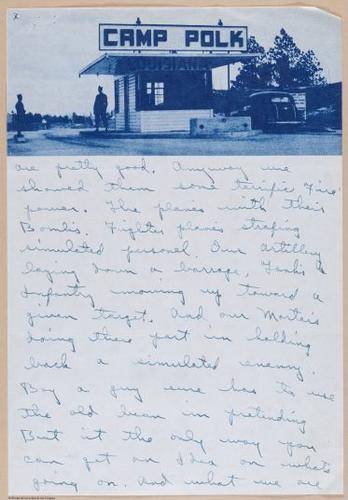 x
CAMP POLK
LOUISIANA
are pretty good. Anyway we
showed them some terrific Fire
power. The planes with their
Bombs. Fighter planes strafing
simulated personel. Our artillery
laying down a barrage, Tanks &
Infantry moving up toward a
given target. And our Mortars
doing their part in holding
back a simulated enemy.
Boy a guy sure has to use
the old bean in pretending
But it the only way you
can get an Idea on whats
going on. And what we are